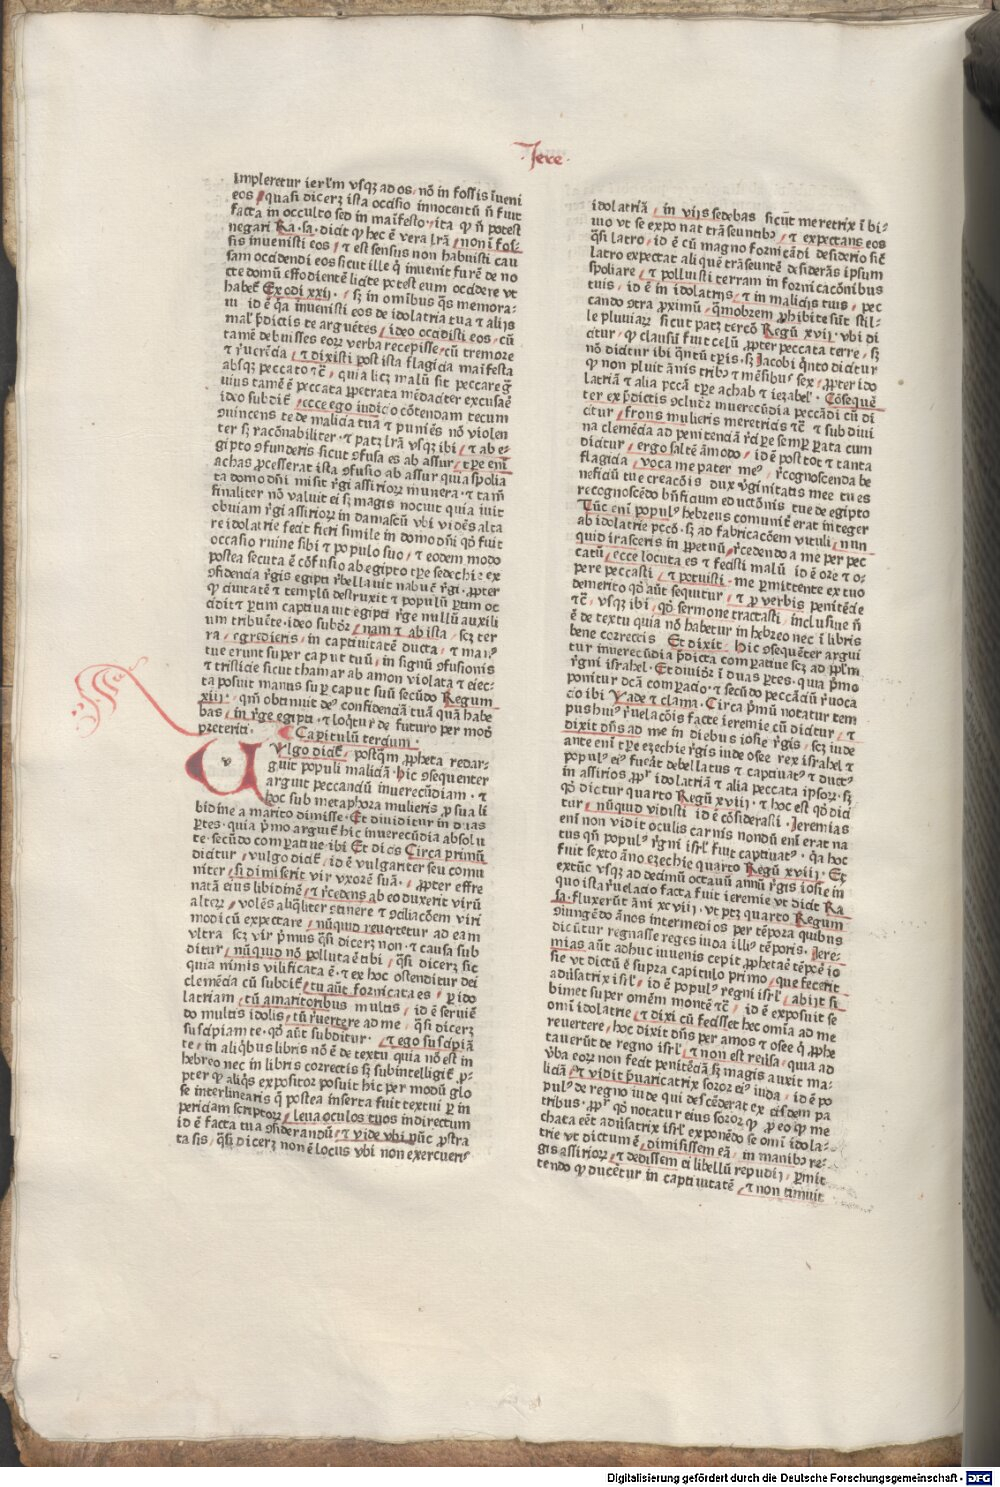 Jere
impleretur ierl'm vsqꝫ ad os, nō in fossis īveni
eos, quasi dicerꝫ ista occisio innocentū n̄ fuit
facta in occulto sed in maīfesto, ita ꝙ n̄ potest
negari Ra. sa. dicit ꝙ hec ē vera lr̄a, non ī fos-
sis invenisti eos, ⁊ est sensus non habuisti cau
sam occidendi eos sicut ille q̇ invenit furē de no
cte domū effodientē licite potest eum occidere vt
habeť Exodi xxij., sꝫ in omībus q̄s memora-
ui id ē q̄a invenisti eos de idolatria tua ⁊ alijs
mal' p̄dictis te arguētes, ideo occidisti eos, cū
tamē debuisses eorꝝ verba recepisse, cū tremore
⁊ r̄uerēcia, ⁊ dixisti post ista flagicia maīfesta
absqꝫ peccato ⁊c̄, quia licꝫ malū sit peccare g̈
uius tamē ē peccata ꝑpetrata mēdaciter excusaē
ideo subdiť, ecce ego iudicio cōtendam tecum
ꝯuincens te de malicia tua ⁊ puniēs nō violen
ter sꝫ racōnabiliter, ⁊ patꝫ lr̄a vsqꝫ ibi, ⁊ ab e-
gipto ꝯfunderis sicut ꝯfusa es ab assur, tꝑe enī
achas ꝓcesserat ista ꝯfusio ab assur quia spolia
ta domo dn̄i misit r̄gi assiriorꝝ munera, ⁊ tam̄
finaliter nō valuit ei sꝫ magis nocuit quia iuit
obuiam r̄gi assiriorꝝ in damascū vbi vidēs alta
re idolatrie fecit fieri simile in domo dn̄i qd̓ fuit
occasio ruine sibi ⁊ populo suo, ⁊ eodem modo
postea secuta ē cōfusio ab egipto tꝑe sedechie ex
ꝯfidencia r̄gis egipti r̄bellauit nabuch̓ r̄gi, ꝓpter
ꝙ ciuitatē ⁊ templū destruxit ⁊ populū ꝑtim oc
cidit ⁊ ꝑtim captiuauit egipti r̄ge nullū auxili
um tribuēte, ideo subd̓r, nam ⁊ ab ista, scꝫ ter
ra, egredieris, in captiuitatē ducta, ⁊ man⁹
tue erunt super caput tuū, in signū ꝯfusionis
⁊ tristicie sicut thamar ab amon violata ⁊ eiec-
ta posuit manus suꝑ caput suū secūdo Regum
xiij., qm̄ obtriuit de⁹ confidenciā tuā quā habe
bas, in r̄ge egipti, ⁊ loq̇tur de futuro per modū
preteriti. Capitulū tercium.
Vlgo diciť, postq̄m ꝓpheta redar-
guit populi maliciā, hic ꝯsequenter
arguit peccandū inuerecūdiam, ⁊
hoc sub metaphora mulieris ꝓ sua li
bidine a marito dimisse, Et diuiditur in duas
ꝑtes, quia p̄mo arguiť hic inuerecūdia absolu
te, secūdo comꝑatiue ibi Et dicis Circa primū
dicitur, vulgo diciť, id ē vulgariter seu comu
niter, si dimiserit vir vxorē suā, ꝓpter effre
natā eius libidinē, ⁊ r̄cedens ab eo duxerit virū
alterꝝ, volēs aliq̄liter ꝯtinere ⁊ ꝯciliacōem viri
modicū expectare, nūquid reuertetur ad eam
vltra scꝫ vir p̄mus q̄si dicerꝫ non, ⁊ causa sub
ditur, nūquid nō polluta ē tibi, q̄si dicerꝫ sic
quia nimis vilificata ē, ⁊ ex hoc ostenditur dei
clemēcia cū subdiť, tu aūt fornicata es, ꝑ ido
latriam, cū amatoribus multis, id ē seruiē
do multis idolis, tū r̄uertere ad me, q̄si dicerꝫ
suscipiam te, qd̓ aūt subditur, ⁊ ego suscipiā
te, in aliq̇bus libris nō ē de textu quia nō est in
hebreo nec in libris correctis sꝫ subintelligiť, ꝓ-
pter ꝙ aliq̇s expositor posuit hic per modū glo
se interlinearis q̄ postea inserta fuit textui ꝑ im
periciam scriptorꝝ, leua oculos tuos in directum
id ē facta tua ꝯsiderandū, ⁊ vide vbi nūc ꝓstra
ta sis, q̄si dicerꝫ non ē locus vbi non exercueris
idolatriā, in vijs sedebas sicut meretrix ī bi-
uio vt se exponat trāseuntibꝰ, ⁊ expectans eos
q̄si latro, id ē cū magno fornicādi desiderio sič
latro expectat aliquē trāseuntē desiderās ipsum
spoliare, ⁊ polluisti terram in fornicacōnibus
tuis, id ē in idolatrijs, ⁊ in malicijs tuis, pec
cando ꝯtra ꝓximū, q̄mobrem ꝓhibite sūt stil-
le pluuiarꝝ sicut patꝫ tercō Regū xvij. vbi di
citur, ꝙ clausū fuit celū ꝓpter peccata terre, sꝫ
nō dicitur ibi q̄ntū tꝑis, sꝫ Jacobi q̇nto dicitur
ꝙ non pluit ānis tribꝰ ⁊ mēsibuꝰ sex, ꝓpter ido
latriā ⁊ alia pccā tꝑe achab ⁊ iezabel'. Cōsequē
ter ex p̄dictis ꝯcludiť inuerecūdia peccādi cū di
citur, frons mulieris meretricis ⁊c̄ ⁊ subdiui
na clemēcia ad penitenciā r̄ciꝑe semꝑ ꝑata cum
dicitur, ergo saltē āmodo, id ē post tot ⁊ tanta
flagicia, voca me pater me⁹, r̄cognoscenda be
neficiū tue creacōis dux v̓ginitatis mee tu es
recognoscēdo bn̄ficium eductōnis tue de egipto
Tūc enī popul⁹ hebreus comunit̓ erat integer
ab idolatrie pccō, sꝫ ad fabricacōem vituli, nun
quid irasceris in ꝑpetuū, r̄cedendo a me per pec
catū, ecce locuta es ⁊ fecisti malū id ē ore ⁊ o-
pere peccasti, ⁊ potuisti, me ꝑmittente ex tuo
demerito qd̓ aūt sequitur, ⁊ ꝓ verbis penitēcie
⁊c̄, vsqꝫ ibi, qd̓ sermone tractasti, inclusiue n̄
ē de textu quia nō habetur in hebreo nec ī libris
bene correctis Et dixit, hic ꝯsequēter argui
tur inuerecūdia p̄dicta comꝑatiue scꝫ ad ppl'm
r̄gni israhel, Et diuid̓r ī duas ꝑtes, quia p̄mo
ponitur dc̄ā comꝑacio, ⁊ secūdo peccādū r̄uoca
cio ibi Vade ⁊ clama. Circa p̄mū notatur tem
pus huiꝰ r̄uelacōis facte ieremie cū dicitur, ⁊
dixit dn̄s ad me in diebus iosie r̄gis, scꝫ iude
ante enī tꝑe ezechie r̄gis iude osee rex israhel ⁊
popul⁹ ei⁹ fuerāt debellatus ⁊ captiuat⁹ ⁊ duct⁹
in assirios, ꝓpť idolatriā ⁊ alia peccata ipsorꝝ, sꝫ
qd̓ dictur quarto Regū xviij. ⁊ hoc est qd̓ dici
tur, nūquid vidisti id ē cōsiderasti, Jeremias
enī non vidit oculis carnis nondū enī erat na
tus qn̄ popul⁹ r̄gni isrl' fuit captiuat⁹, q̄a hoc
fuit sexto āno ezechie quarto Regū xviij. Et
extūc vsqꝫ ad decimū octauū annū r̄gis iosie in
quo ista r̄uelacio facta fuit ieremie vt dicit Ra
sa, fluxerūt āni xcviij. vt ptꝫ quarto Regum
ꝯiungēdo ānos intermedios per tēpora quibus
dicūtur regnasse reges iuda illi⁹ tēporis, Jere-
mias aūt adhuc iuuenis cepit ꝓphetaē tēpꝫē io
sie vt dictū ē supra capitulo primo, que fecerit
aduersatrix isrl', id ē popul⁹ regni isrl', abijt si
bimet super omēm montē ⁊c̄, id ē exposuit se
omī idolatrie, ⁊ dixi cū fecisset hec omīa ad me
reuertere, hoc dixit dn̄s per amos ⁊ osee q̇ ꝓphe
tauerūt de regno isrl', ⁊ non est reūsa, quia ad
v̓ba eorꝝ non fecit penitēciā sꝫ magis auxit ma-
liciā, ⁊ vidit p̄uaricatrix soror ei⁹ iuda, id ē po
pul⁹ de regno iude qui descēderat ex eisdem pa
tribus, ꝓpť qd̓ notatur eius soror ꝙ ꝓ eo ꝙ me
chata eēt aduersatrix isrl' exponēdo se omī idola-
trie vt dictum ē, dimisissem eā, in manibꝰ re-
gis assiriorꝝ, ⁊ dedissem ei libellū repudij, ꝑmit
tendo ꝙ ducētur in captiuitatē, ⁊ non timuit
Digitalisierung gefördert durch die Deutsche Forschungsgemeinschaft - DFG